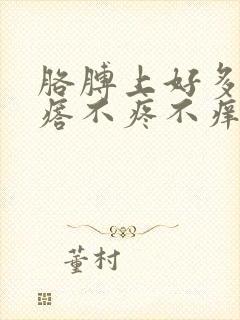 胳膊上好多
痞不疼不痒
董村